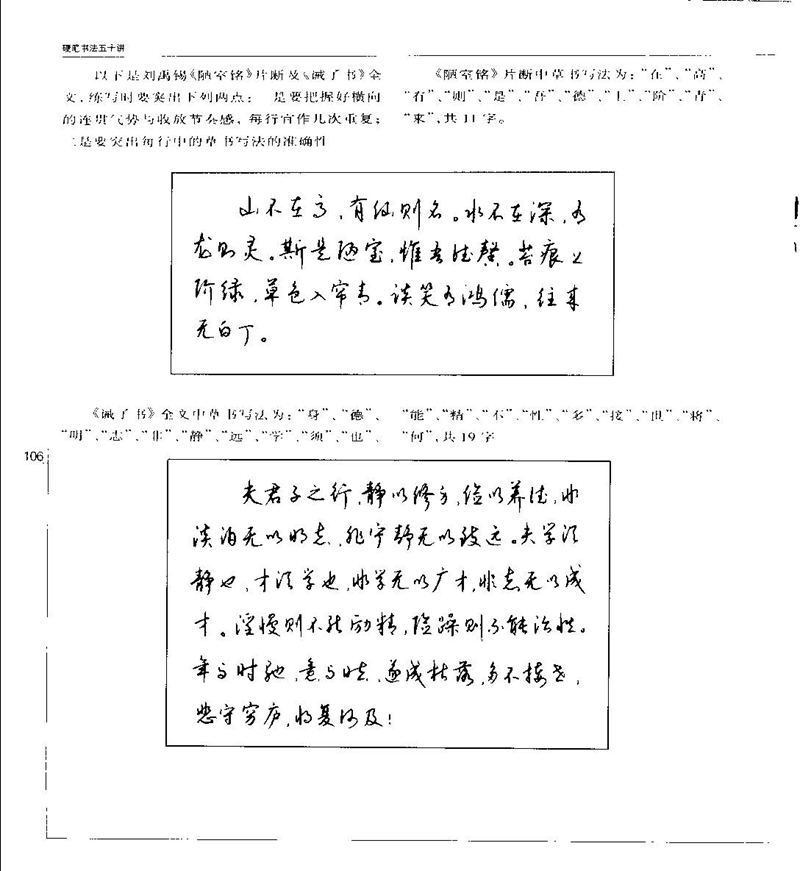 硬笔书法五十讲
以下是刘禹锡《陋室铭》片断及《诫子书》全
文,练写时要突出下列两点:一是要把握好横向
的连贯气势与收放节奏感,每行宜作几次重复;
二是要突出每行中的草书写法的准确性
《陋室铭》片断中草书写法为:“在”、“高”、
“有”、“则”、“是”、“吾”、“德”、“上”、“阶”、“青”、
“来”,共11字。
山不在高,有仙则名。水不在深,有
龙则灵。斯是陋室,惟吾德馨。苔痕上
阶绿,草色入帘青。谈笑有鸿儒,往来
无白丁。
《诫子书》全文中草书写法为:“身”、“德”、
“明”、“志”、“非”、“静”、“远”、“学”、“须”、“也”、
“能”、“精”、“不”、“性”、“多”、“接”、“世”、“将”、
“何”,共19字
106
夫君子之行,静以修身,俭以养德,非
淡泊无以明志,非宁静无以致远。夫学须
静也,才须学也,非学无以广才,非志无以成
才。淫慢则不能励精,险躁则不能治性。
年与时驰,意与日去,遂成枯落,多不接世,
悲守穷庐,将复何及!